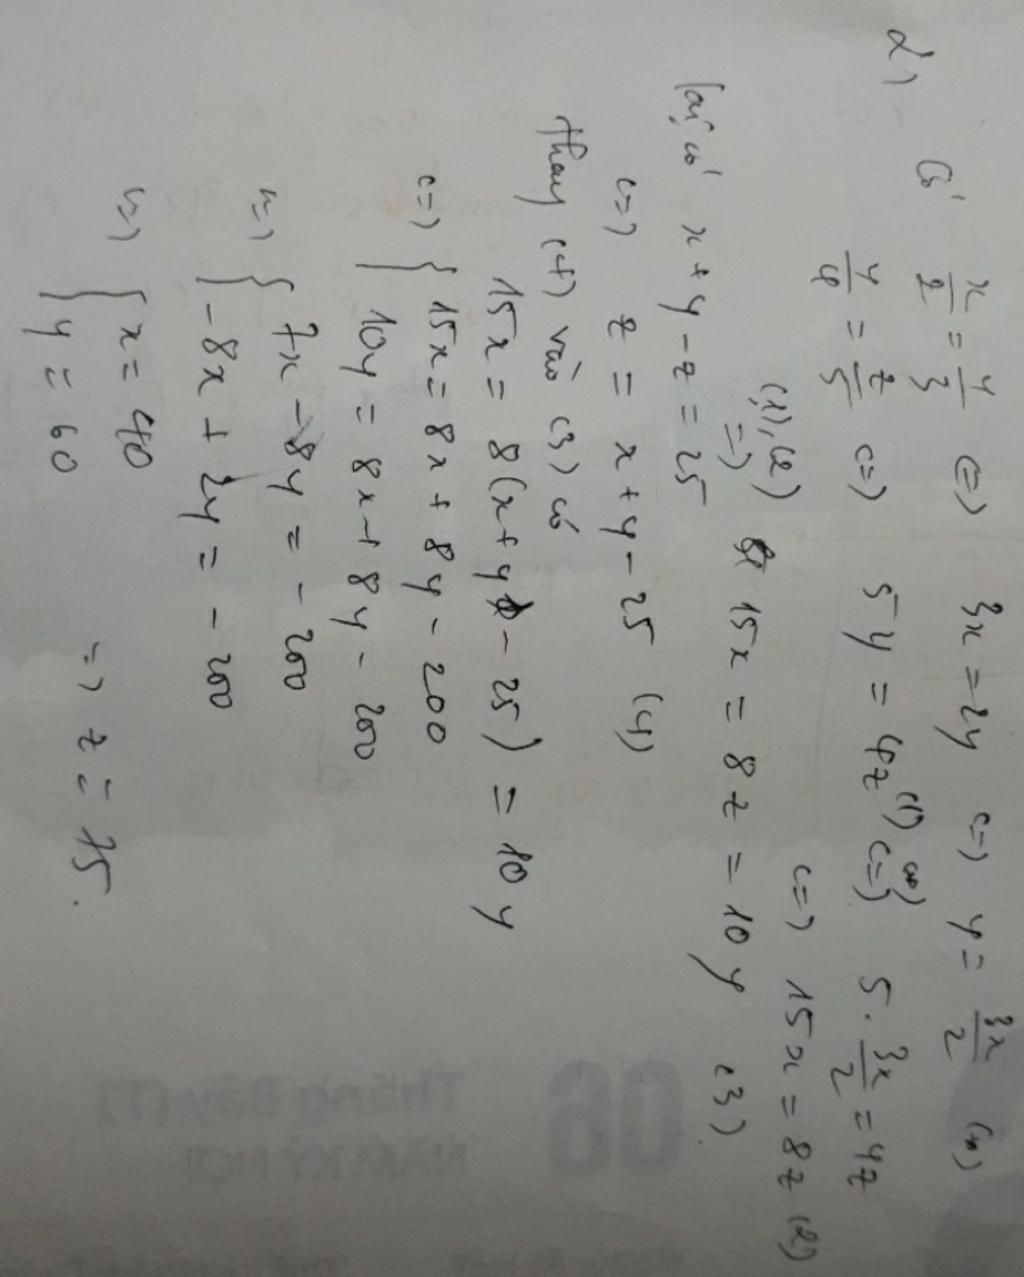 2)
Có x/2 = y/3 (=) 3x = 2y (=) y = 3x/2 (*)
y/4 = z/5 (=) 5y = 4z (1) (*) (=) 5 . 3x/2 = 4z
(=) 15x = 8z (2)
(1), (2) => 15x = 8z = 10y (3)
lại có x + y - z = 25
(=) z = x + y - 25 (4)
thay (4) vào (3) có
15x = 8(x + y - 25) = 10y
(=) { 15x = 8x + 8y - 200
10y = 8x + 8y - 200
(=) { 7x - 8y = - 200
- 8x + 2y = - 200
(=) { x = 40
y = 60
=> z = 75.
06
Tháng Bảy (T)
NĂM KỶ HỢI